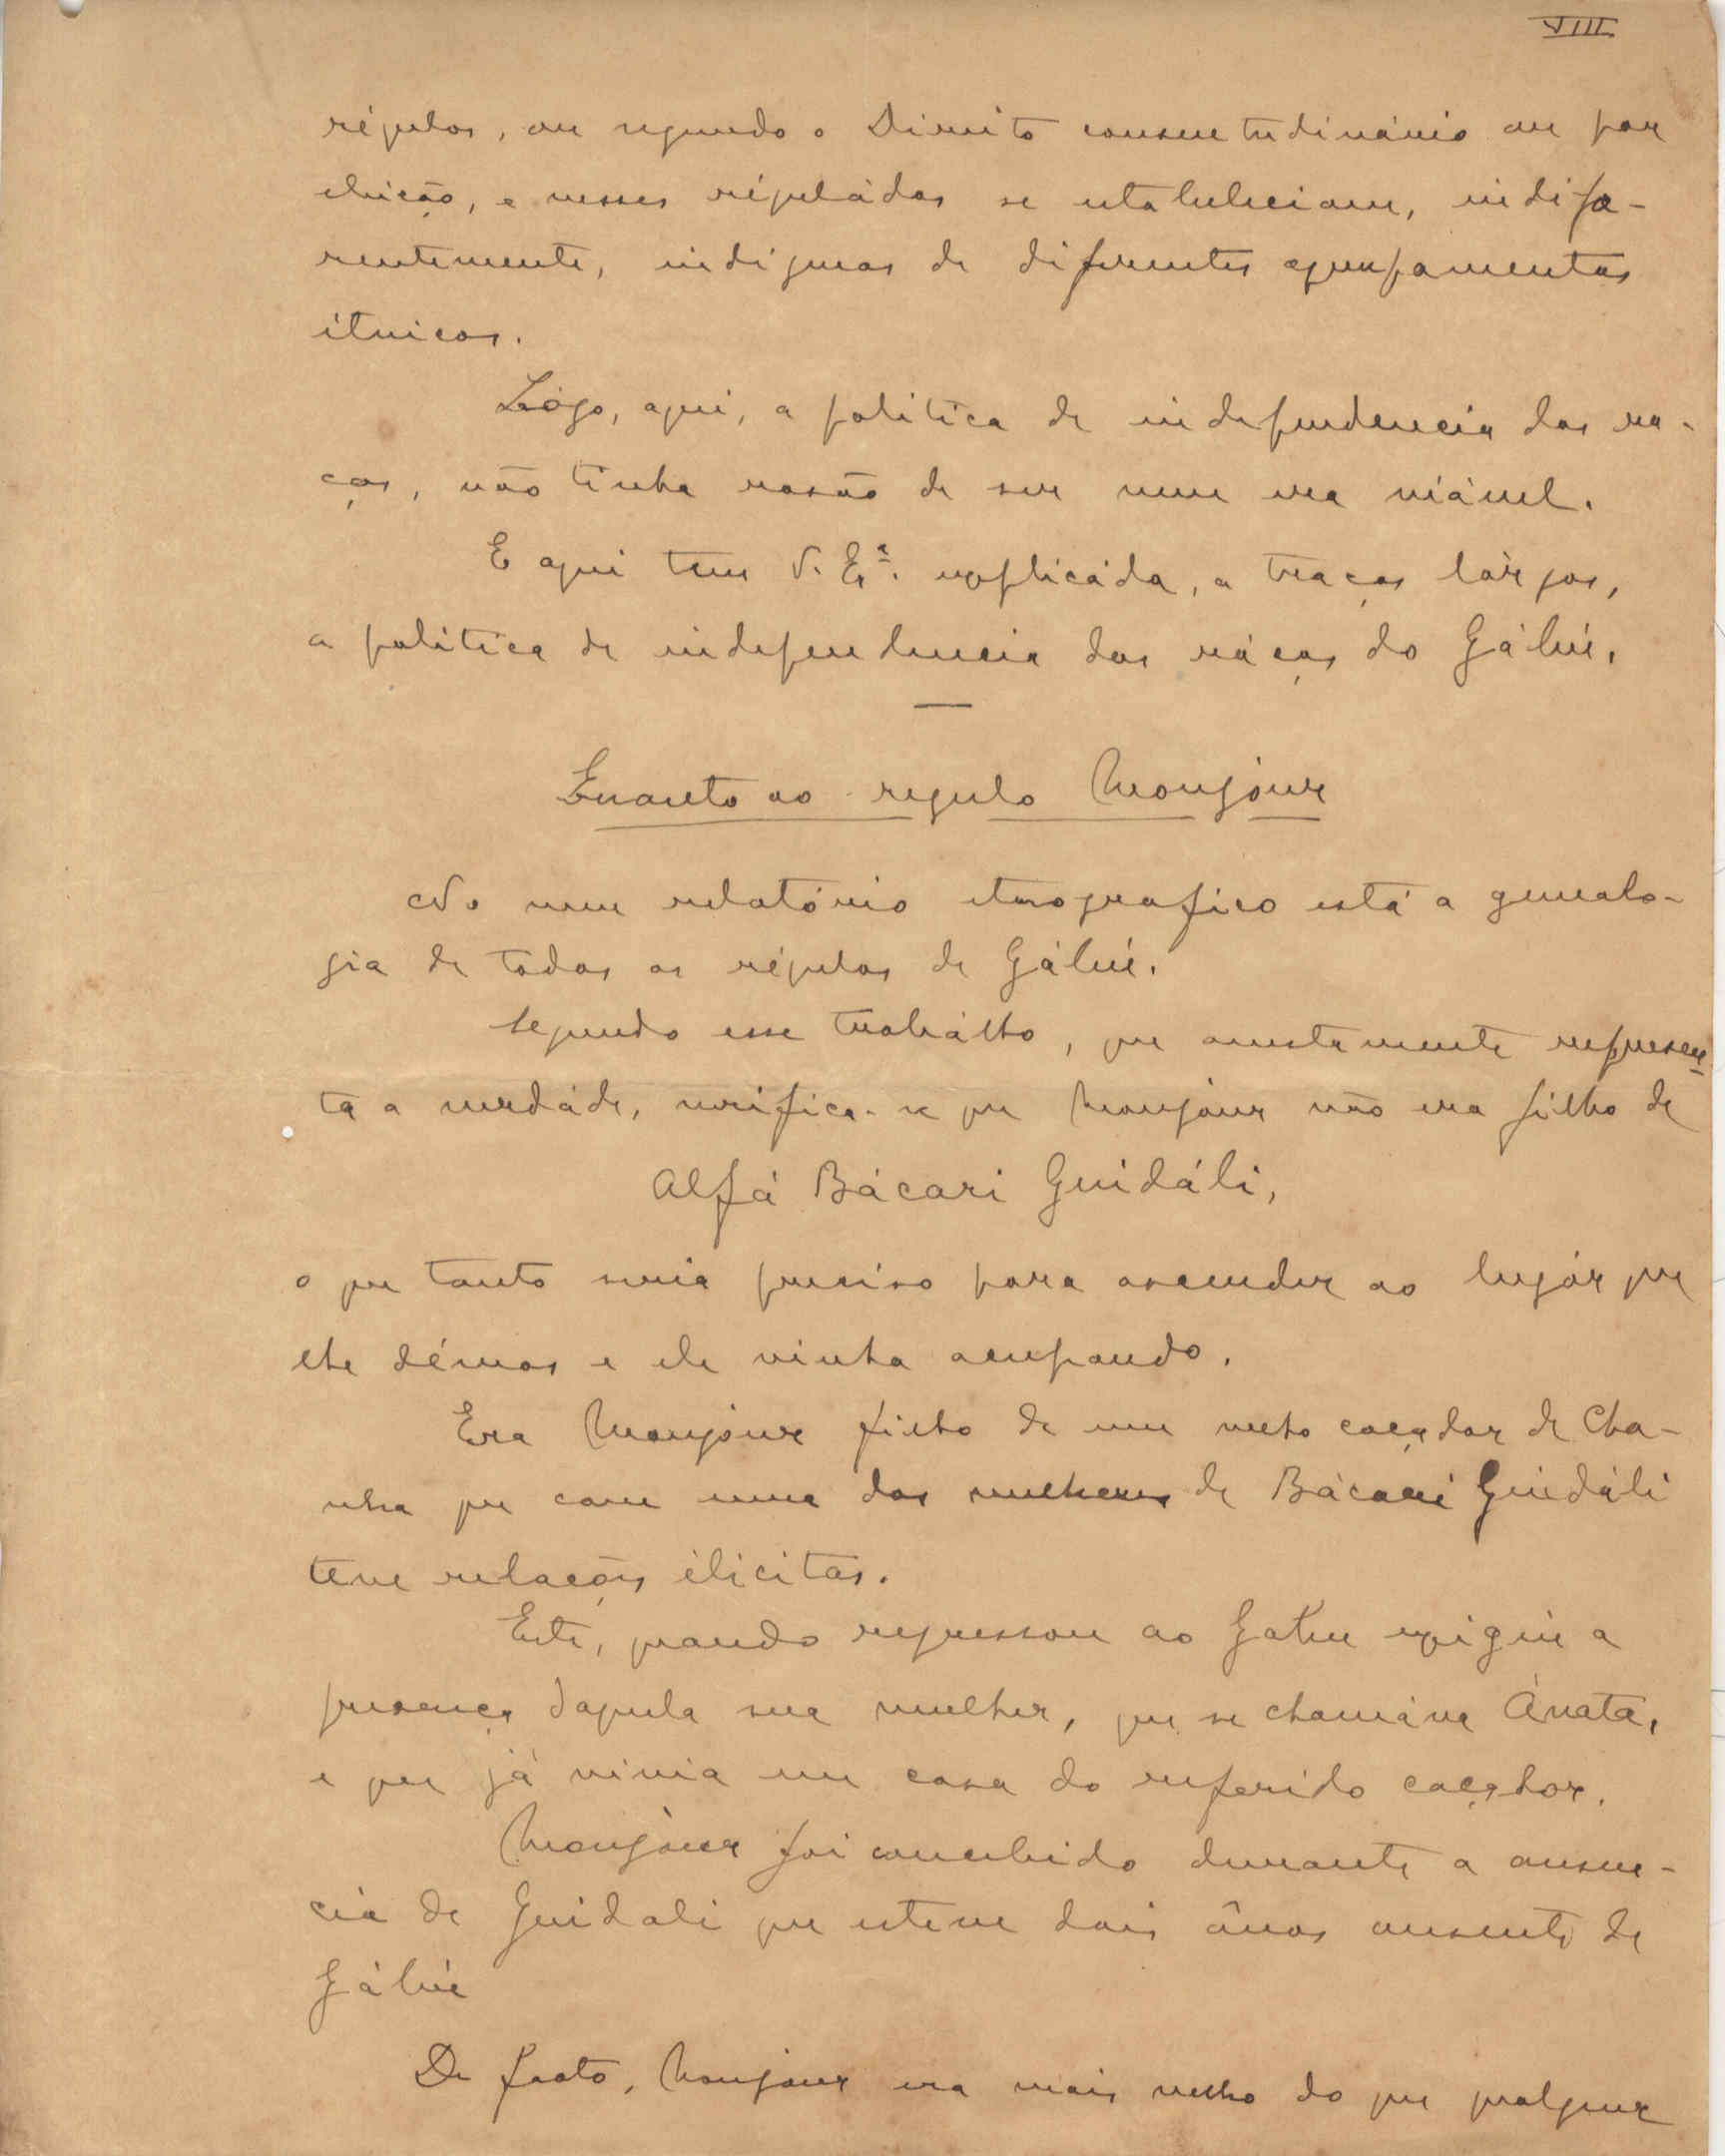 VIII
régulos, ou segundo o Direito consuetudinário ou por
eleição, e nesses réguládos se estabeleciam, indife-
rentemente, indigenas de diferentes agrupamentos
étnicos.
Lógo, aqui, a politica de independencia das ra-
ças, não tinha rasão de ser nem era viável.
E aqui tem V. Exª. explicáda, a traços lárgos,
a politica de independencia das ráças do Gábú.
Quanto ao regulo Monjour
No meu relatório etnografico está a genealo-
gia de todos os régulos de Gábú.
Segundo esse trabálho, que
represen-
ta a verdáde, verifica-se que Monjour não era filho de
Alfá Bácari Guidáli,
o que tanto seria preciso para ascender ao lugár que
lhe démos e ele vinha ocupando.
Era Monjour filho de um
caçador de Cha-
nha que com uma das mulheres de Bácari Guidáli
teve relações ilicitas.
Este, quando regressou ao Gabu exigiu a
presença daquela sua mulher, que se chamáva Ánata,
e que já vivia em casa do referido caçador.
Monjour foi concebido durante a ausen-
cia de Guidali que esteve dois ânos ausente de
Gábú
De facto, Monjour era mais velho do que qualquer